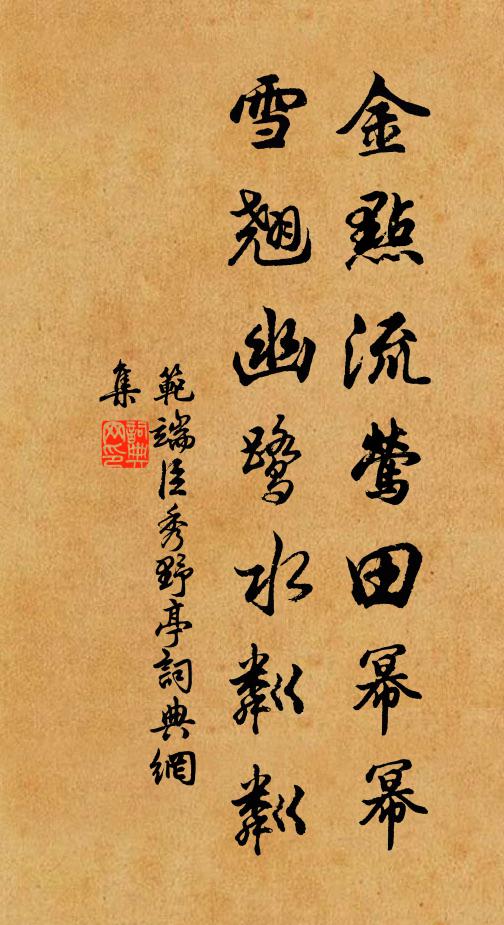 金點流鶯田冪冪
雪翹幽鷺水粼粼
範端臣秀野亭詞典網
集
詞典網印